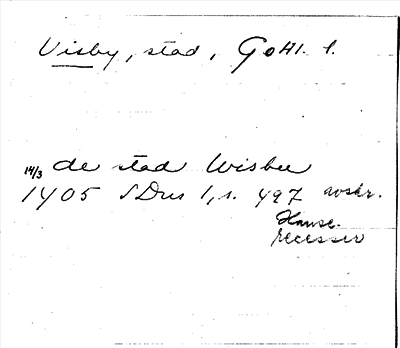 Visby, stad, Gotl. l.
14/3 de stad Wisbu
1405 SDns 1, s. 497 avskr.
Hanse.
recesser